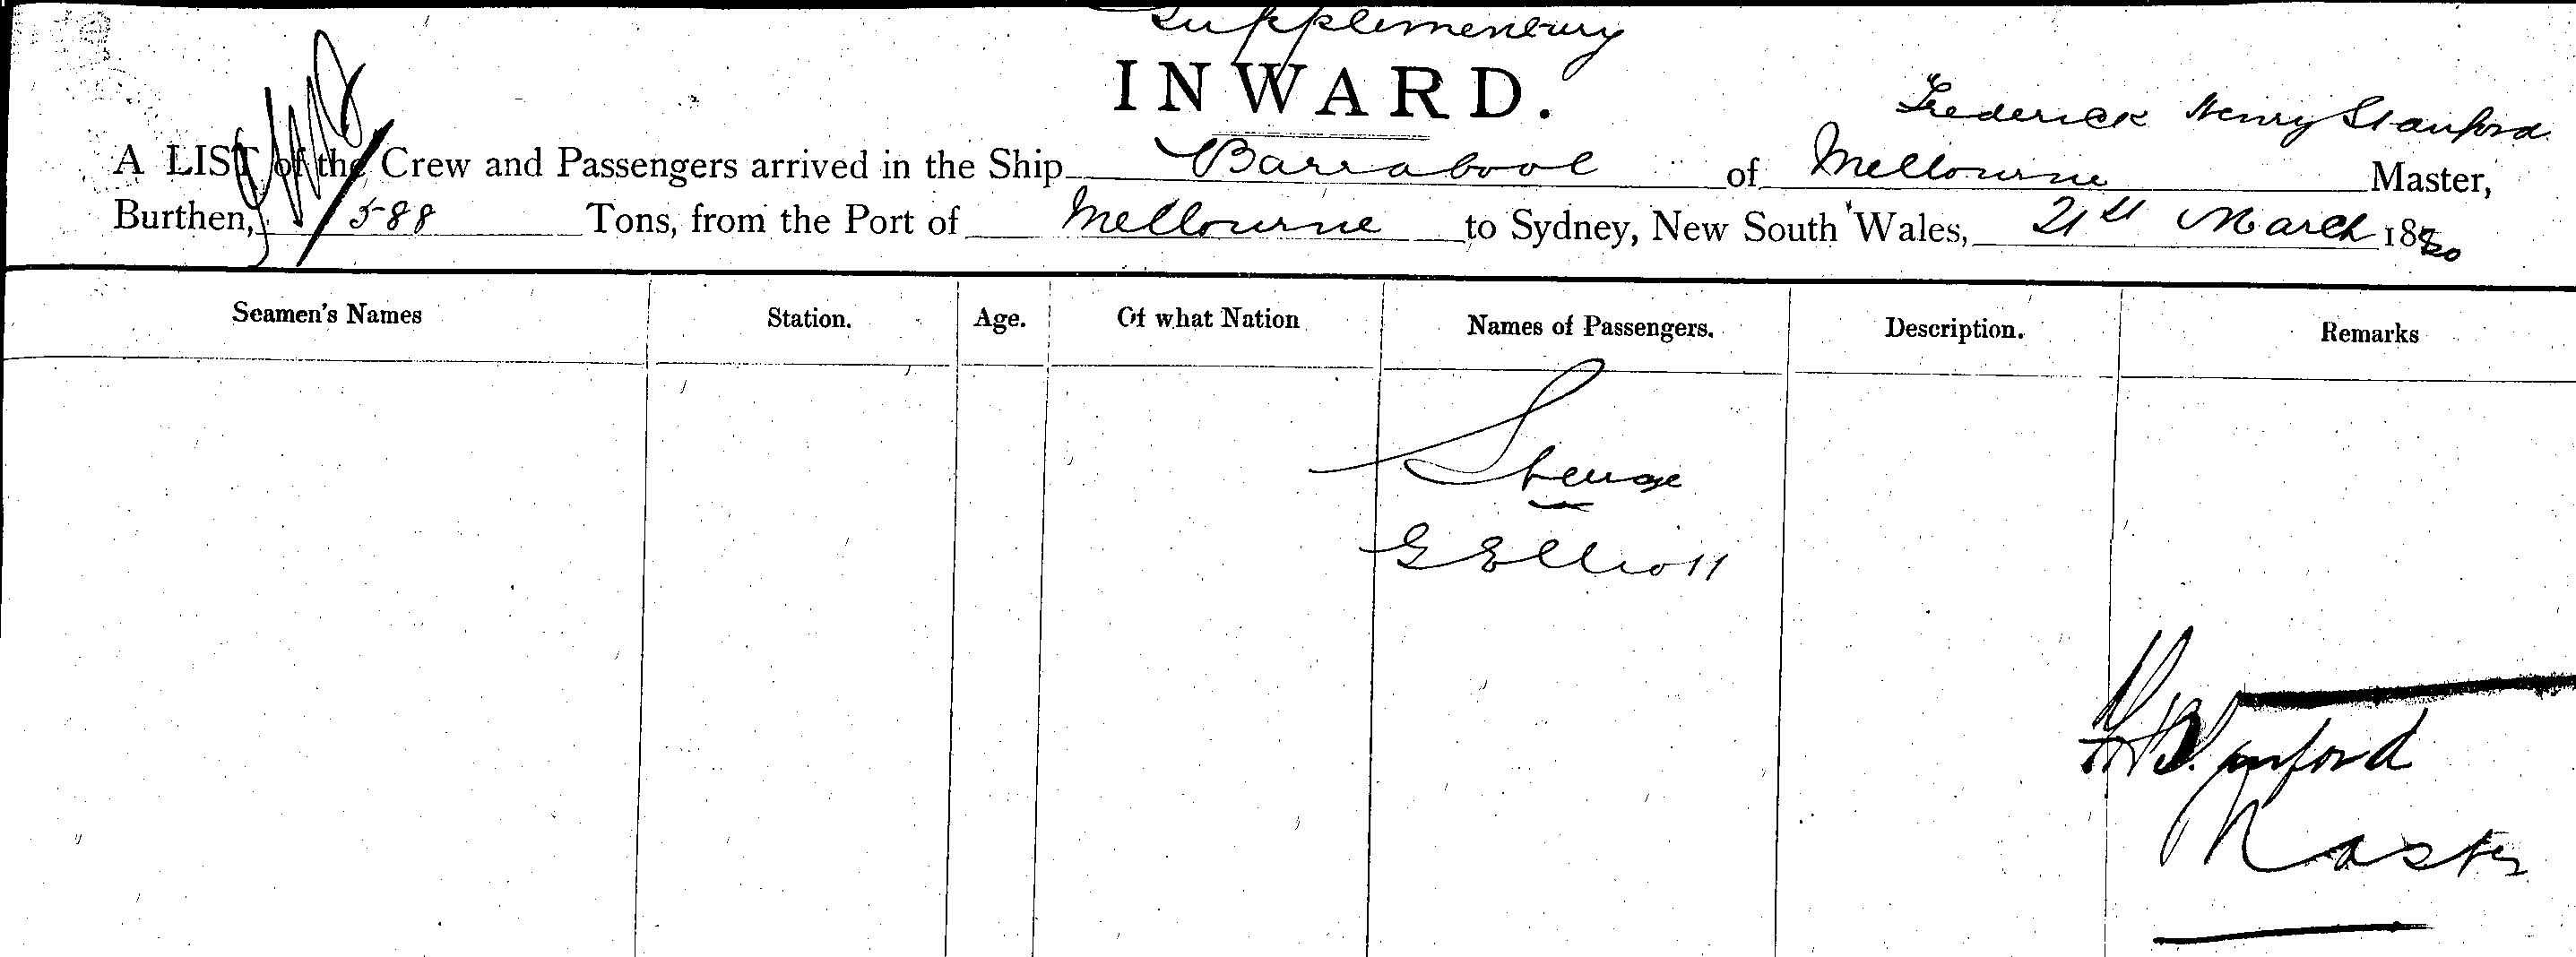 Supplementary
INWARD.
Frederick Henry Stanford
A LIST of the Crew and Passengers arrived in the Ship Barrabool of Melbourne Master,
Burthen, 588 Tons, from the Port of Melbourne to Sydney, New South Wales, 21st March 1880
Seamen's Names Station. Age. Of what Nation Names of Passengers. Description. Remarks
Steerage
G Elliott
FH Stanford
Master